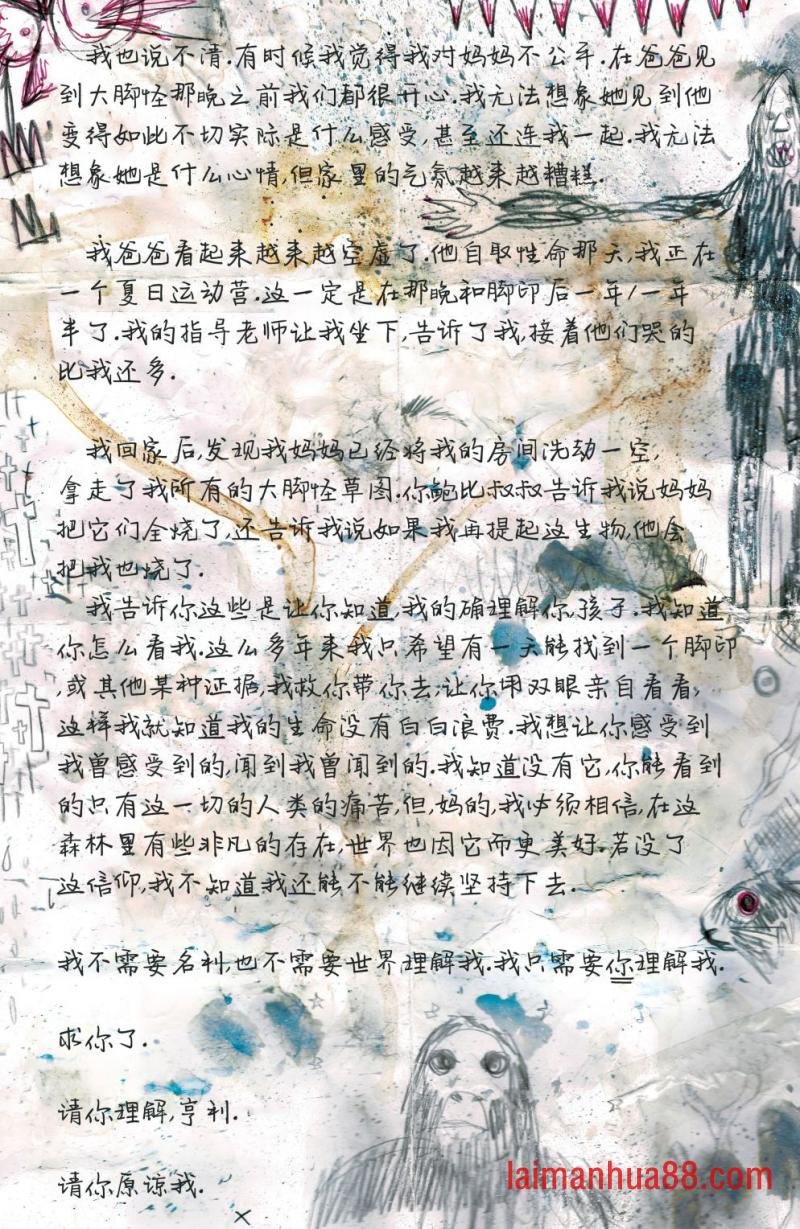 我也说不清.有时候我觉得我对妈妈不公平.在爸爸见
到大脚怪那晚之前我们都很开心.我无法想象她见到他
变得如此不切实际是什么感受,甚至还连我一起.我无法
想象她是什么心情,但家里的气氛越来越糟糕.
我爸爸看起来越来越空虚了.他自取性命那天,我正在
一个夏日运动营.这一定是在那晚和脚印后一年/一年
半了.我的指导老师让我坐下,告诉了我,接着他们哭的
比我还多.
我回家后,发现我妈妈已经将我的房间洗劫一空,
拿走了我所有的大脚怪草图.你鲍比叔叔告诉我说妈妈
把它们全烧了,还告诉我说如果我再提起这生物,他会
把我也烧了.
我告诉你这些是让你知道,我的确理解你,孩子.我知道
你怎么看我.这么多年来我只希望有一天能找到一个脚印
,或其他某种证据,我救你带你去,让你用双眼亲自看看,
这样我就知道我的生命没有白白浪费.我想让你感受到
我曾感受到的,闻到我曾闻到的.我知道没有它,你能看到
的只有这一切的人类的痛苦,但,妈的,我必须相信,在这
森林里有些非凡的存在,世界也因它而更美好.若没了
这信仰,我不知道我还能不能继续坚持下去.
我不需要名利,也不需要世界理解我.我只需要你理解我.
求你了.
请你理解,亨利.
请你原谅我.
x
laimanhua88.com